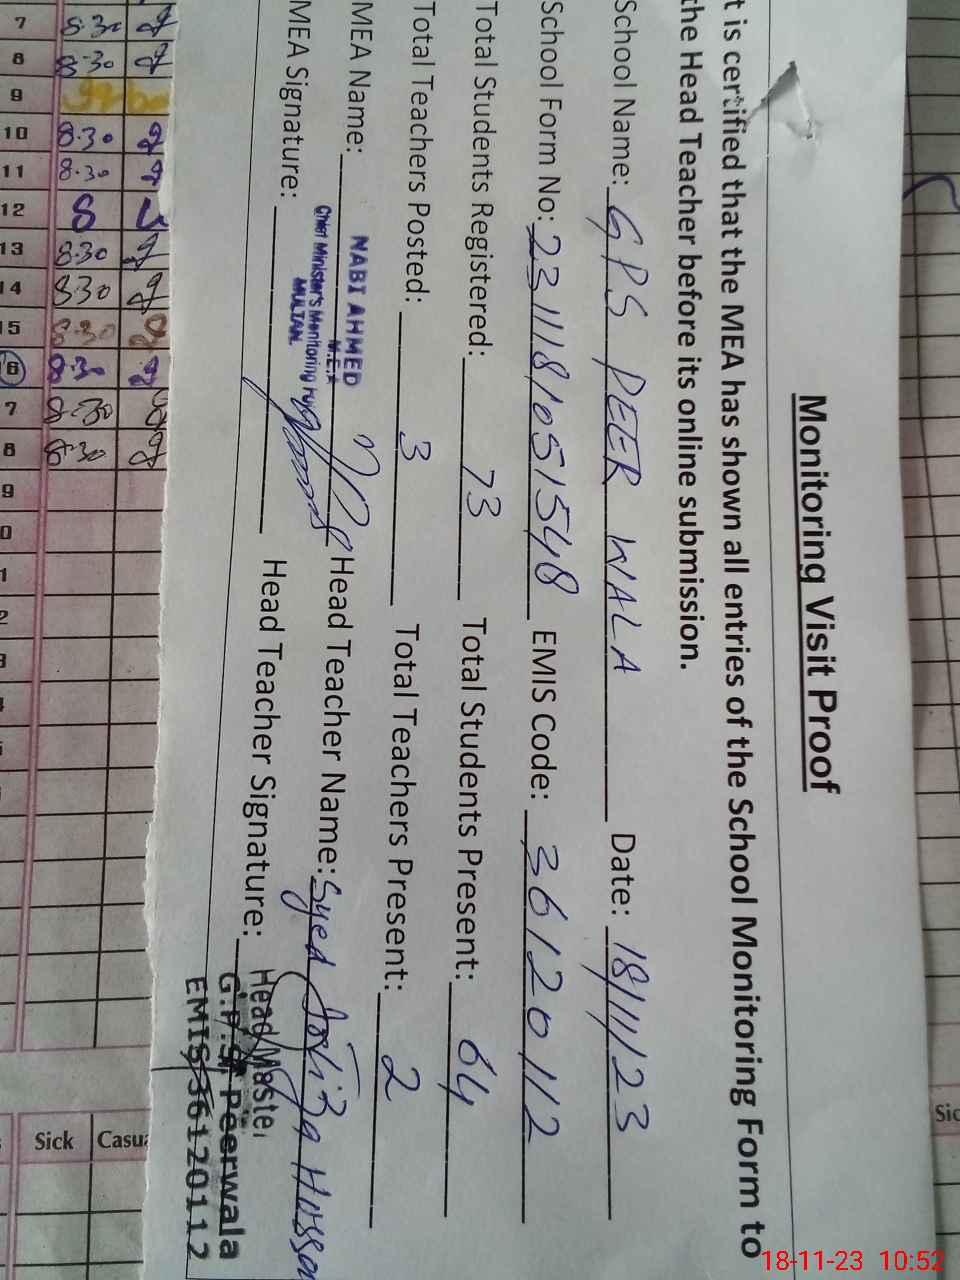 Monitoring Visit Proof
t is certified that the MEA has shown all entries of the School Monitoring Form to
the Head Teacher before its online submission.
School Name: GPS PEER WALA Date: 18/11/23
School Form No: 231118/1051548 EMIS Code: 36120112
Total Students Registered: 73 Total Students Present: 64
Total Teachers Posted: 3 Total Teachers Present: 2
MEA Name: NABI AHMED Head Teacher Name: Syed
M.E.A
Chief Minister's Monitoring
MULTAN.
MEA Signature: Head Teacher Signature:
Head Master
G.P.S Peerwala
EMIS 36120112
7 8.30
8 8.30
9
10 8.30
11 8.30
12 S
13 8.30
14 830
15 8.30
6 8.30
7 8.30
8 8.30
9
0
1
2
Sick Casua
Sic
18-11-23 10:52